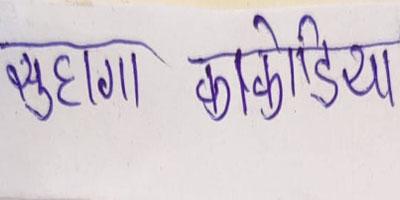 सुहागा काकोडिया